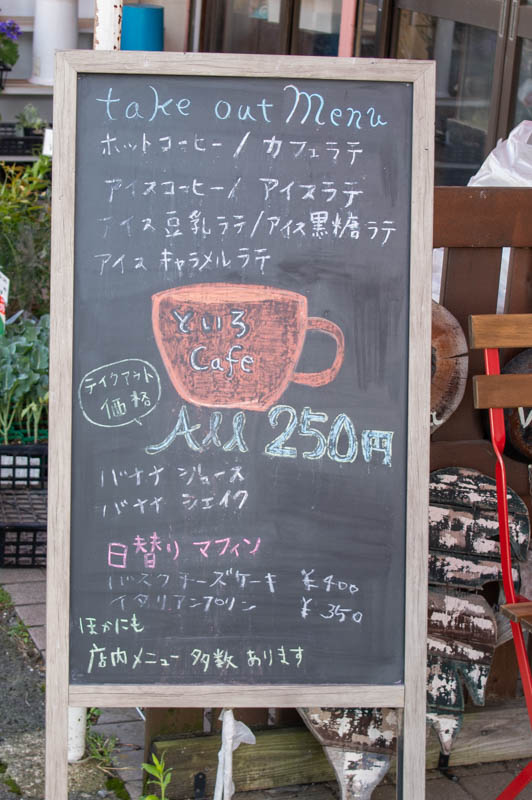 take out Menu
ホットコーヒー/カフェラテ
アイスコーヒー/アイスラテ
アイス豆乳ラテ/アイス黒糖ラテ
アイスキャラメルラテ
といろ
Cafe
テイクアウト
価格
All 250円
バナナジュース
バナナシェイク
日替りマフィン
バスクチーズケーキ ¥400
イタリアンプリン ¥350
ほかにも
店内メニュー多数あります